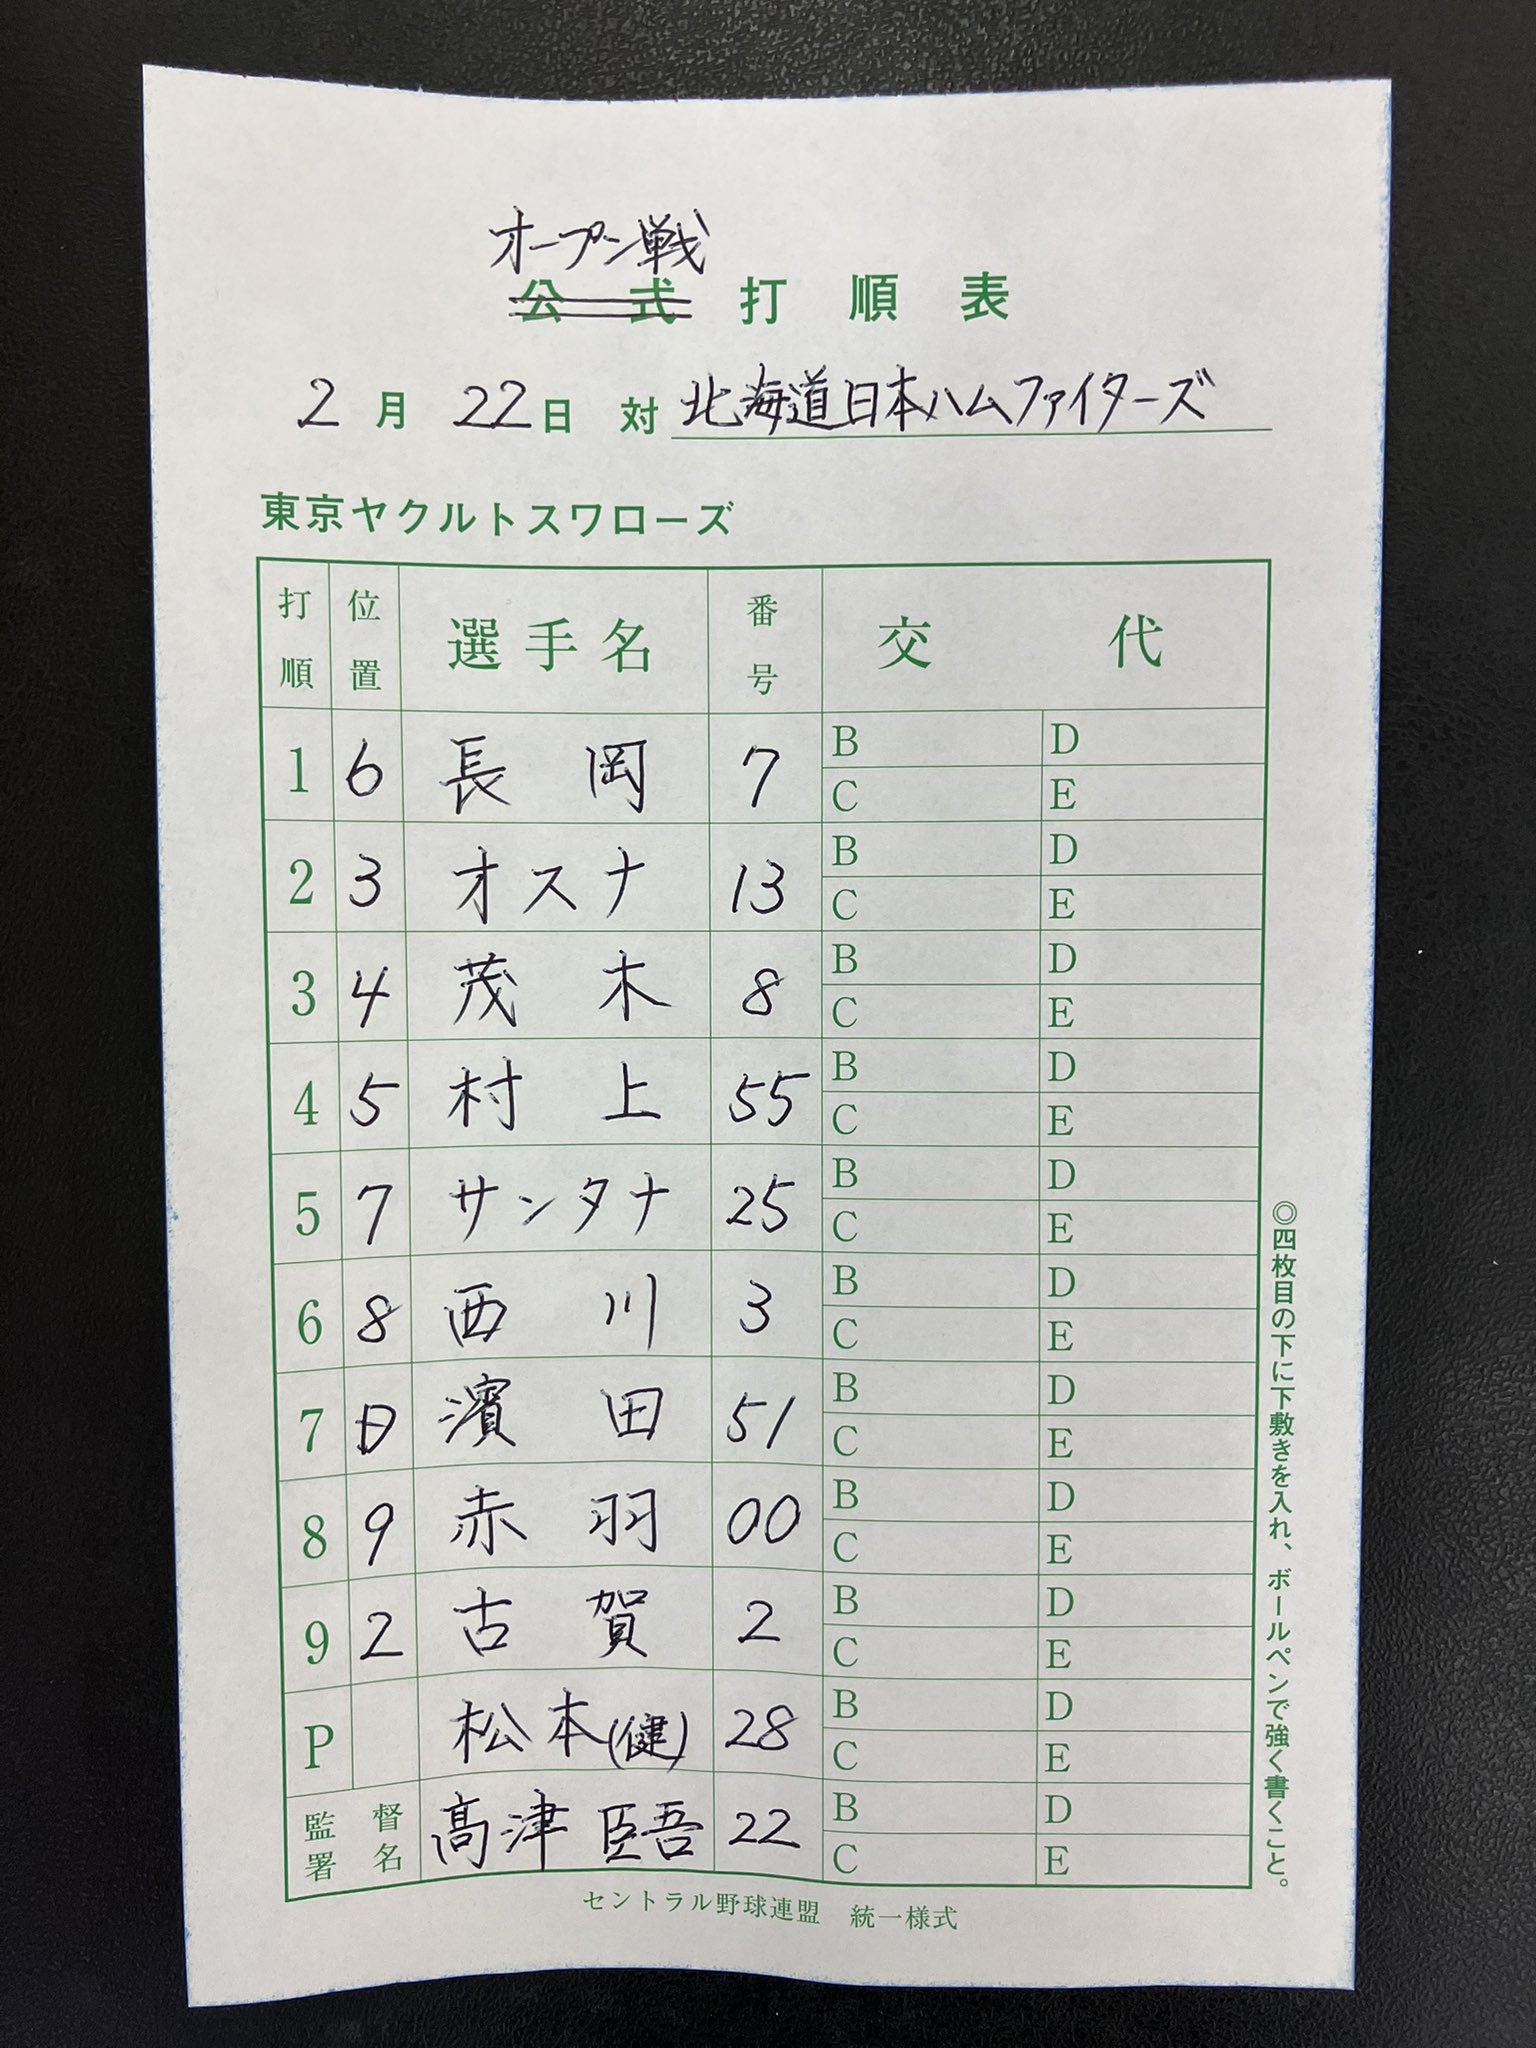 オープン戦
公式打順表
2月22日 対 北海道日本ハムファイターズ
東京ヤクルトスワローズ
打順 位置 選手名 番号 交代
1 6 長岡 7 B D
C E
2 3 オスナ 13 B D
C E
3 4 茂木 8 B D
C E
4 5 村上 55 B D
C E
5 7 サンタナ 25 B D
C E
6 8 西川 3 B D
C E
7 D 濱田 51 B D
C E
8 9 赤羽 00 B D
C E
9 2 古賀 2 B D
C E
P 松本(健) 28 B D
C E
監督署名 髙津臣吾 22 B D
C E
◎四枚目の下に下敷きを入れ、ボールペンで強く書くこと。
セントラル野球連盟 統一様式